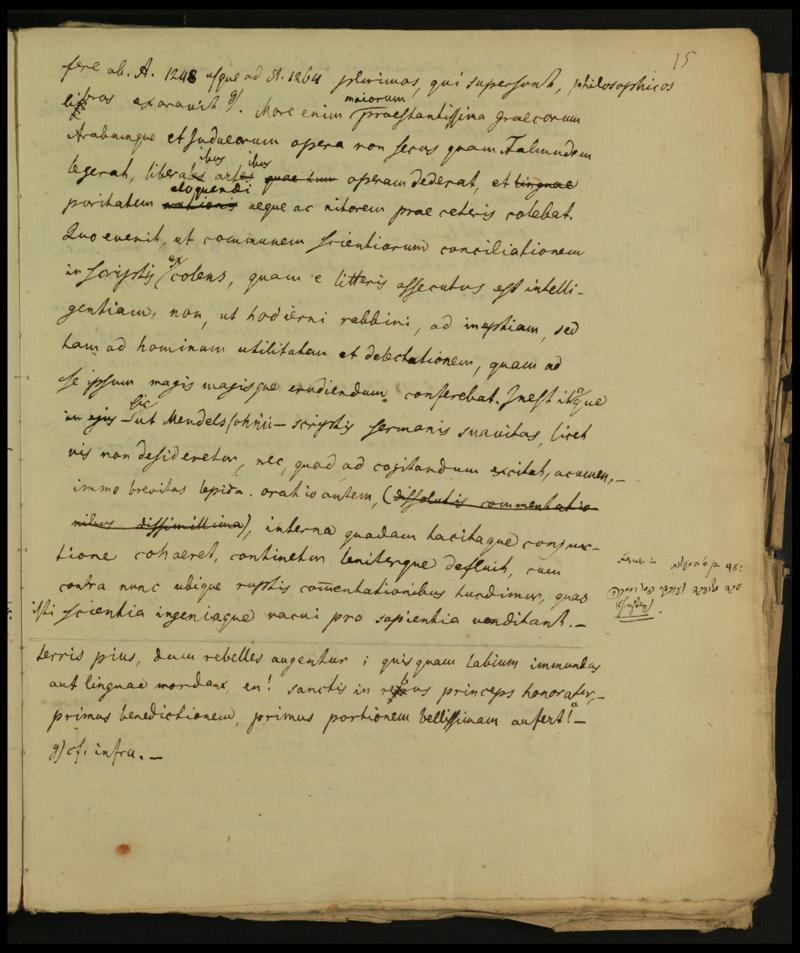 15
fere ab. A. 1248 usque ad A. 1264 plurimos, qui supersunt, philosophicos
libros exaravit g). More enim maiorum praestantissima graecorum
Arabumque et Judaeorum opera non secus quam Talmudem
legerat, liberalibus artibus quae tum operam dederat, et linguae
puritatem eloquendi aeque ac nitorem prae ceteris colebat.
Quo evenit, ut communem scientiarum conciliationem
in scriptis excolens, quam e litteris assecutus est intelli-
gentiam, non, ut hodierni rabbini, ad ineptiam, sed
tam ad hominum utilitatem et delectationem, quam ad
se ipsum magis magisque erudiendum conferebat. Inest itaque
in ejus sic ut Mendelssohnii – scriptis sermonis suavitas, licet
vis non desideretur, nec, quod ad cogitandum excitat, acumen, –
immo brevitas lepida. oratio autem, (dissolutis commentatio-
nibus dissimillima), interna quadam tacitaque conjunc-
tione cohaeret, continetur leniterque defluit, cum
contra nunc ubique ruptis com̄entationibus tundimur, quas
isti scientia ingenioque vacui pro sapientia venditant. –
terris pius, dum rebelles augentur; quisquam labium immundus
aut linguae mordax, en! sanctis in rebus princeps honoratur, –
primus benedictionem, primus portionem bellissimam aufert! –
g) cf. infra. –